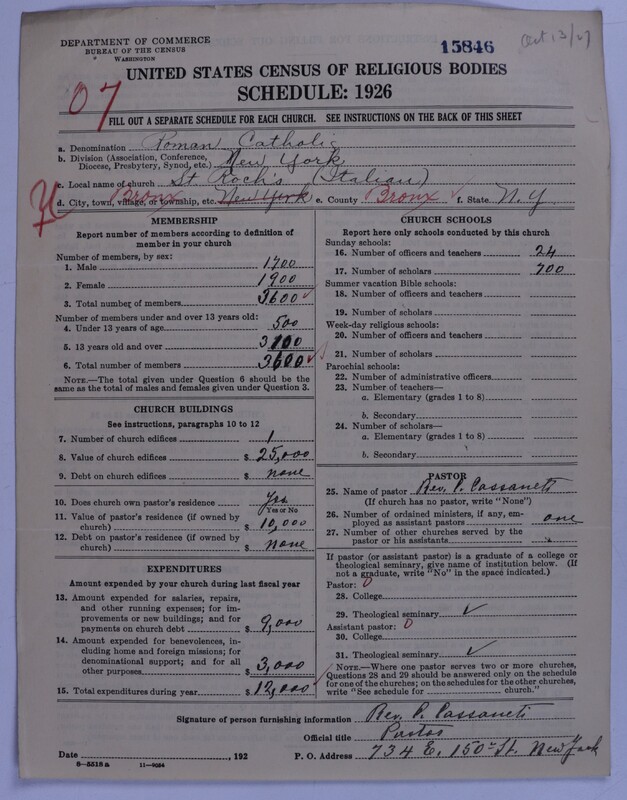 DEPARTMENT OF COMMERCE
BUREAU OF THE CENSUS
WASHINGTON
15846
Oct 13/27
UNITED STATES CENSUS OF RELIGIOUS BODIES
SCHEDULE: 1926
07
FILL OUT A SEPARATE SCHEDULE FOR EACH CHURCH. SEE INSTRUCTIONS ON THE BACK OF THIS SHEET
a. Denomination Roman Catholic
b. Division (Association, Conference, Diocese, Presbytery, Synod, etc.) New York
c. Local name of church St Roch's (Italian)
d. City, town, village, or township, etc. Bronx New York e. County Bronx f. State N.Y.
MEMBERSHIP
Report number of members according to definition of member in your church
Number of members, by sex:
1. Male 1700
2. Female 1900
3. Total number of members 3600
Number of members under and over 13 years old:
4. Under 13 years of age 500
5. 13 years old and over 3100
6. Total number of members 3600
NOTE.—The total given under Question 6 should be the same as the total of males and females given under Question 3.
CHURCH BUILDINGS
See instructions, paragraphs 10 to 12
7. Number of church edifices 1
8. Value of church edifices $ 25,000
9. Debt on church edifices $ none
10. Does church own pastor's residence Yes
Yes or No
11. Value of pastor's residence (if owned by church) $ 10,000
12. Debt on pastor's residence (if owned by church) $ none
EXPENDITURES
Amount expended by your church during last fiscal year
13. Amount expended for salaries, repairs, and other running expenses; for improvements or new buildings; and for payments on church debt $ 9,000
14. Amount expended for benevolences, including home and foreign missions; for denominational support; and for all other purposes $ 3,000
15. Total expenditures during year $ 12,000
CHURCH SCHOOLS
Report here only schools conducted by this church
Sunday schools:
16. Number of officers and teachers 24
17. Number of scholars 700
Summer vacation Bible schools:
18. Number of officers and teachers
19. Number of scholars
Week-day religious schools:
20. Number of officers and teachers
21. Number of scholars
Parochial schools:
22. Number of administrative officers
23. Number of teachers—
a. Elementary (grades 1 to 8)
b. Secondary
24. Number of scholars—
a. Elementary (grades 1 to 8)
b. Secondary
PASTOR
25. Name of pastor Rev. P. Cassaneti
(If church has no pastor, write "None")
26. Number of ordained ministers, if any, employed as assistant pastors one
27. Number of other churches served by the pastor or his assistants
If pastor (or assistant pastor) is a graduate of a college or theological seminary, give name of institution below. (If not a graduate, write "No" in the space indicated.)
Pastor: 0
28. College
29. Theological seminary ✓
Assistant pastor: 0
30. College
31. Theological seminary ✓
NOTE.—Where one pastor serves two or more churches, Questions 28 and 29 should be answered only on the schedule for one of the churches; on the schedules for the other churches, write "See schedule for church."
Signature of person furnishing information Rev. P. Cassaneti
Official title Pastor
Date , 192 P. O. Address 734 E. 150 St. New York
8-5518a 11-9054